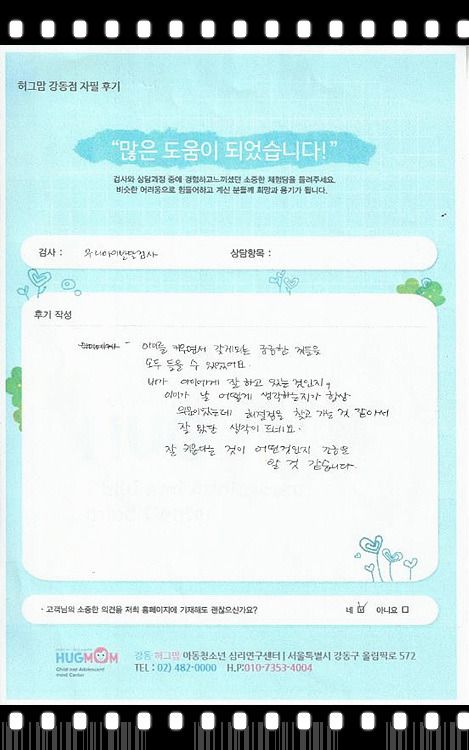 허그맘 강동점 자필 후기
“많은 도움이 되었습니다!”
검사와 상담과정 중에 경험하고느끼셨던 소중한 체험담을 들려주세요.
비슷한 어려움으로 힘들어하고 계신 분들께 희망과 용기가 됩니다.
검사 : 우리아이발달검사 상담항목 :
후기 작성
- 아이를 키우면서 갖게되는 궁금한 것들을
모두 들을 수 있었어요.
내가 아이에게 잘 하고 있는 것인지,
아이가 날 어떻게 생각하는지가 항상
의문이었는데 해결점을 찾고 가는 것 같아서
잘 왔단 생각이 드네요.
잘 키운다는 것이 어떤것인지 가슴으로
알 것 같습니다.
· 고객님의 소중한 의견을 저희 홈페이지에 기재해도 괜찮으신가요? 네 ☑ 아니요 □
HUGMOM
Child and Adolescent
mind Center
강동 허그맘 아동청소년 심리연구센터 | 서울특별시 강동구 올림픽로 572
TEL : 02) 482-0000 H.P:010-7353-4004